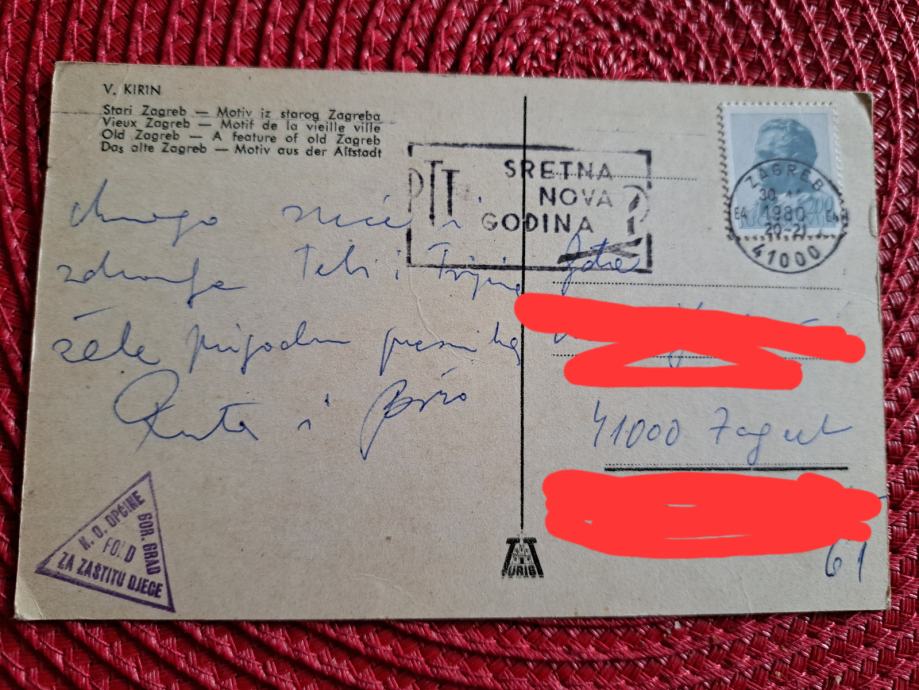 V. KIRIN
Stari Zagreb — Motiv iz starog Zagreba
Vieux Zagreb — Motif de la vieille ville
Old Zagreb — A feature of old Zagreb
Das alte Zagreb — Motiv aus der Altstadt
PTT
SRETNA
NOVA
GODINA
ZAGREB
30
1980
20-21
41000
mnogo sreće i
zdravlja Tebi i
žele
i
41000 Zagreb
61
N. O. OPĆINE
GOR. GRAD
FOND
ZA ZAŠTITU DJECE
TURIST